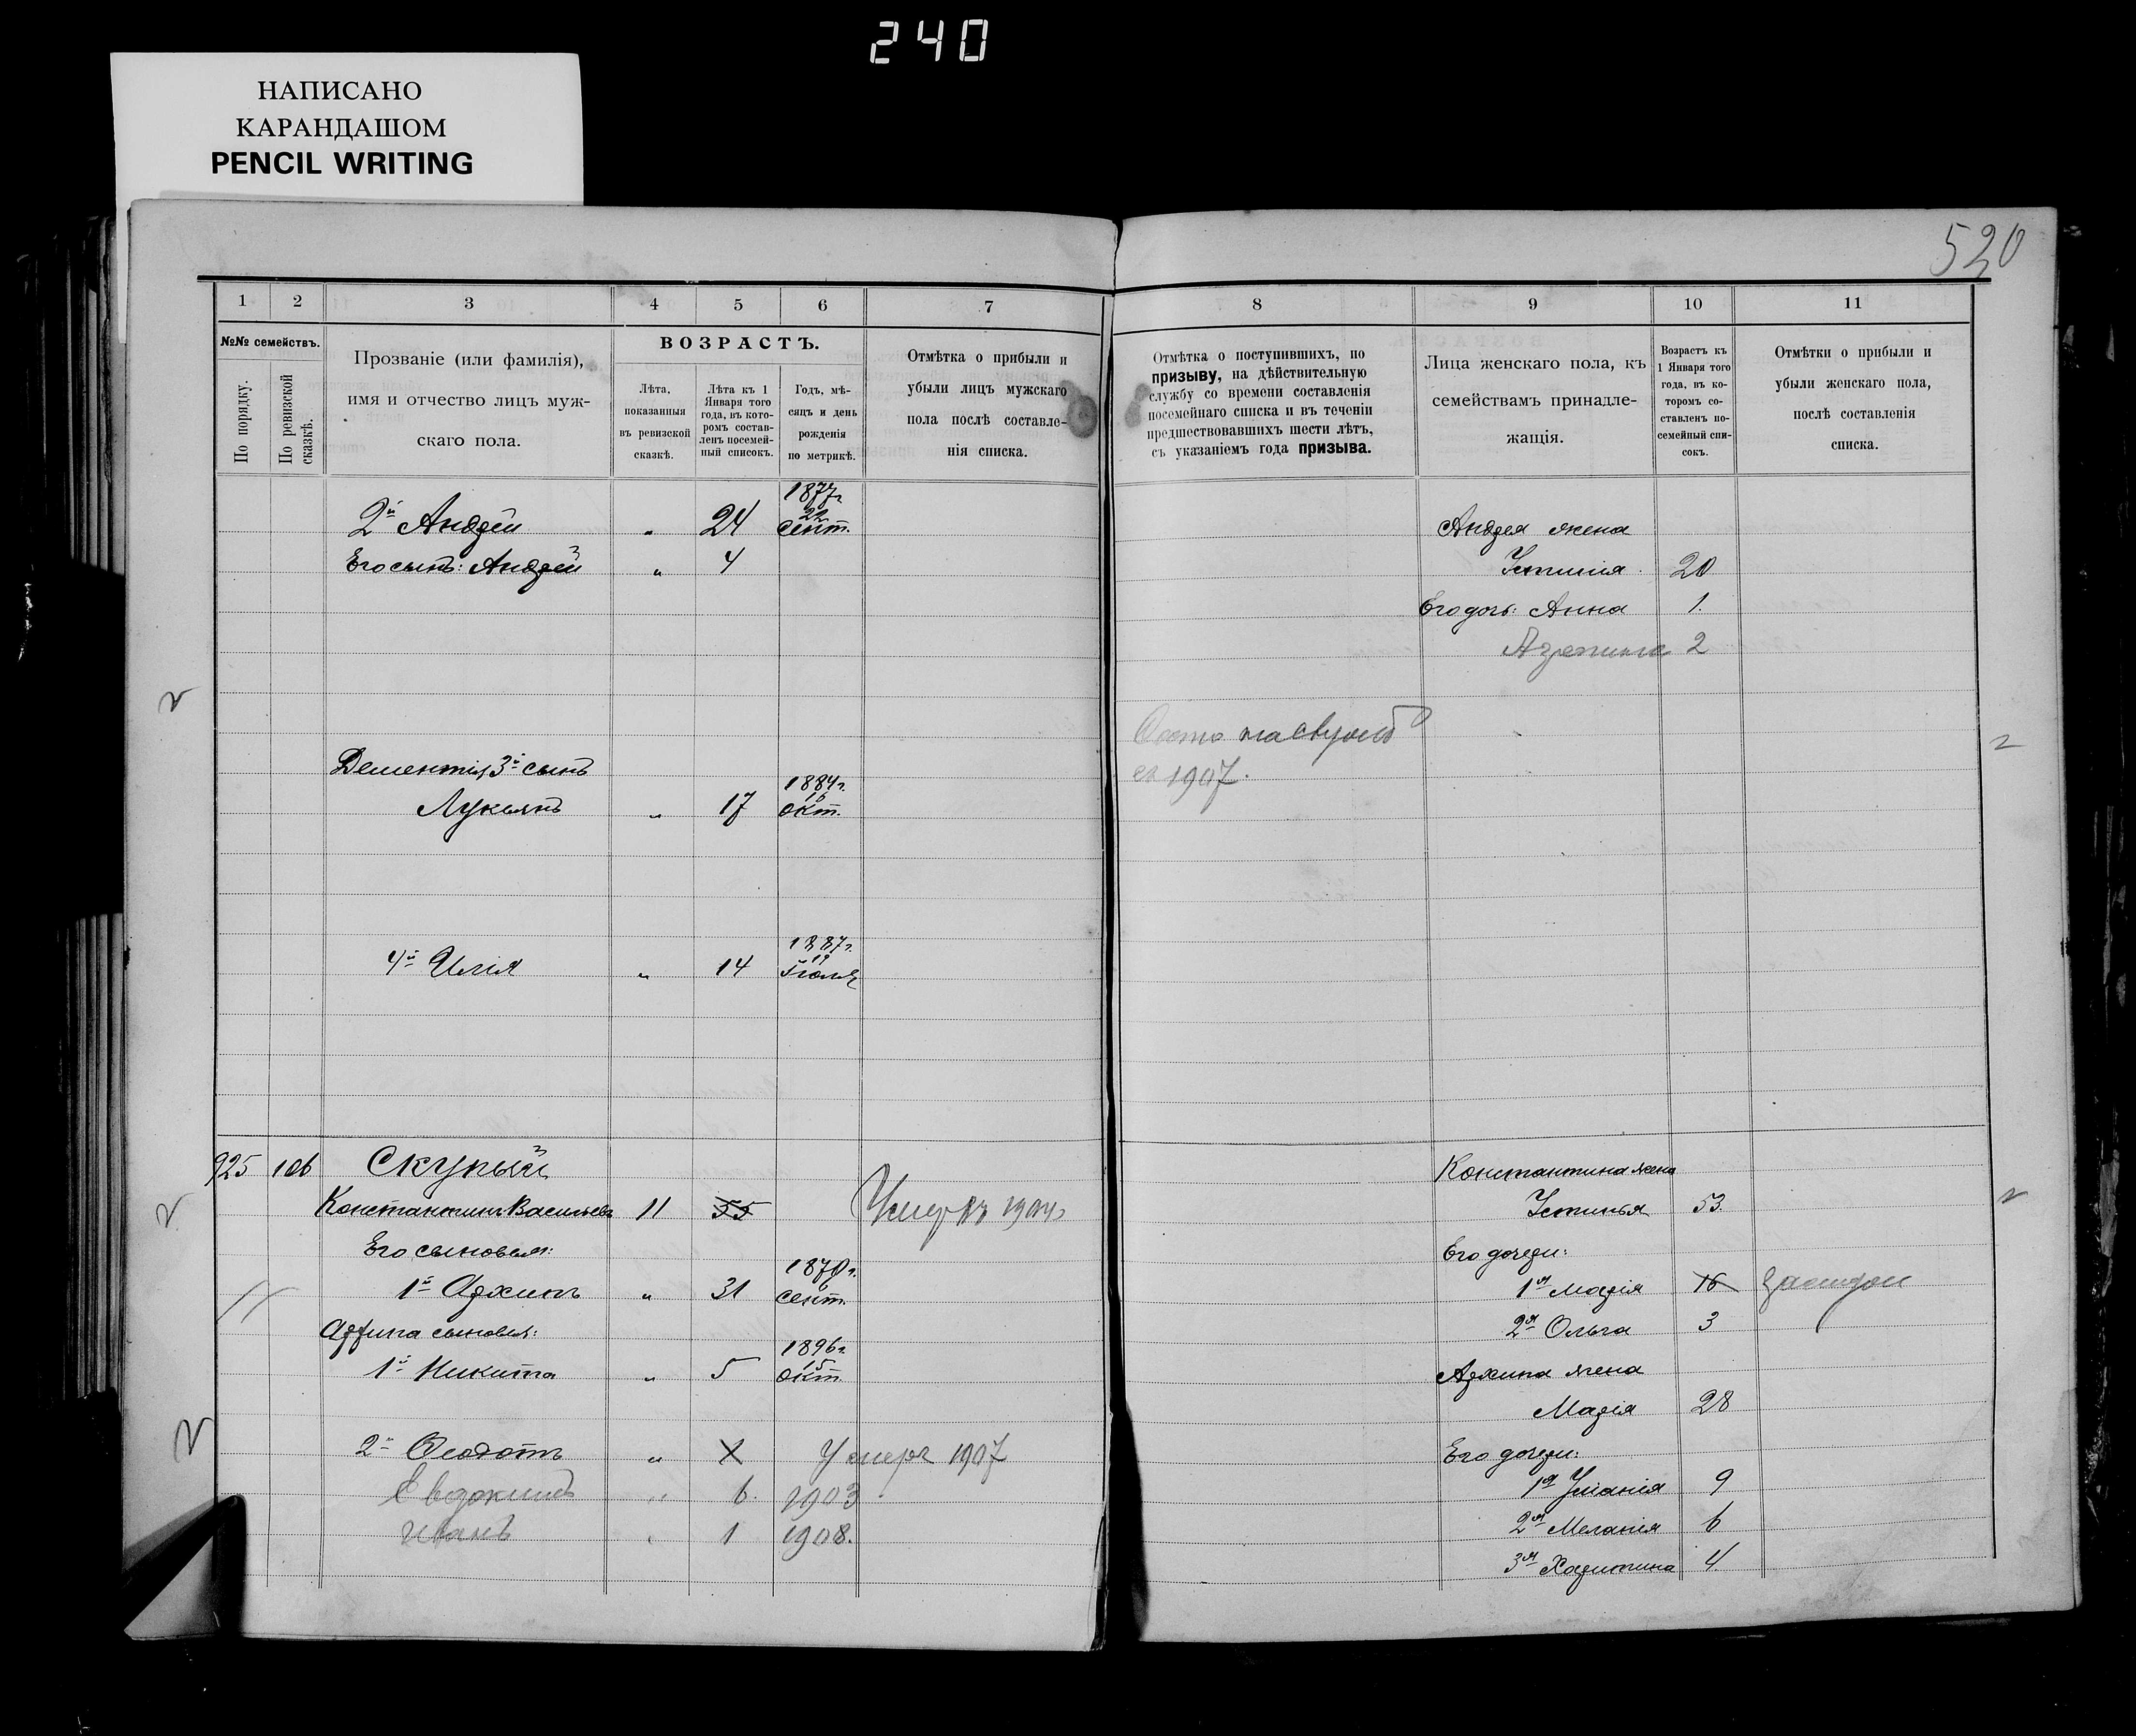 240
НАПИСАНО
КАРАНДАШОМ
PENCIL WRITING
520
1 2 3 4 5 6 7
№№ семействъ.
По порядку.
По ревизской сказкѣ.
Прозваніе (или фамилія),
имя и отчество лицъ муж-
скаго пола.
ВОЗРАСТЪ.
Лѣта,
показанныя
въ ревизской
сказкѣ.
Лѣта къ 1
Января того
года, въ кото-
ромъ состав-
ленъ посемей-
ный списокъ.
Годъ, мѣ-
сяцъ и день
рожденія
по метрикѣ.
Отмѣтка о прибыли и
убыли лицъ мужскаго
пола послѣ составле-
нія списка.
2й Андрей " 24 1877г. 22 Сент.
Его сынъ: Андрей " 4
Дементія 3й сынъ
Лукьянъ " 17 1884г. 15 Окт.
4й Илія " 14 1887г. 19 Іюля
925 106 Скупый
Константинъ Васильевъ 11 55 Умеръ въ 1904г
Его сыновья:
1й Архипъ " 31 1870г. 6 Сент.
Архипа сыновья:
1й Никита " 5 1896г. 15 Окт.
2й Ѳеодотъ " 1 Умеръ 1907
Евдокимъ " 6. 1903
Иванъ " 1 1908.
8 9 10 11
Отмѣтка о поступившихъ, по
призыву, на дѣйствительную
службу со времени составленія
посемейнаго списка и въ теченіи
предшествовавшихъ шести лѣтъ,
съ указаніемъ года призыва.
Лица женскаго пола, къ
семействамъ принадле-
жащія.
Возрастъ къ
1 Января того
года, въ ко-
торомъ со-
ставленъ по-
семейный спи-
сокъ.
Отмѣтки о прибыли и
убыли женскаго пола,
послѣ составленія
списка.
Андрея жена
Устинія 20
Его дочь: Анна 1.
Агрепина 2
съ 1907.
Константина жена
Устинья 53.
Его дочери:
1я Марія 16
2я Ольга 3
Архипа жена
Марія 28
Его дочери:
1я Уліанія 9
2я Меланія 6
3я Харитина 4.